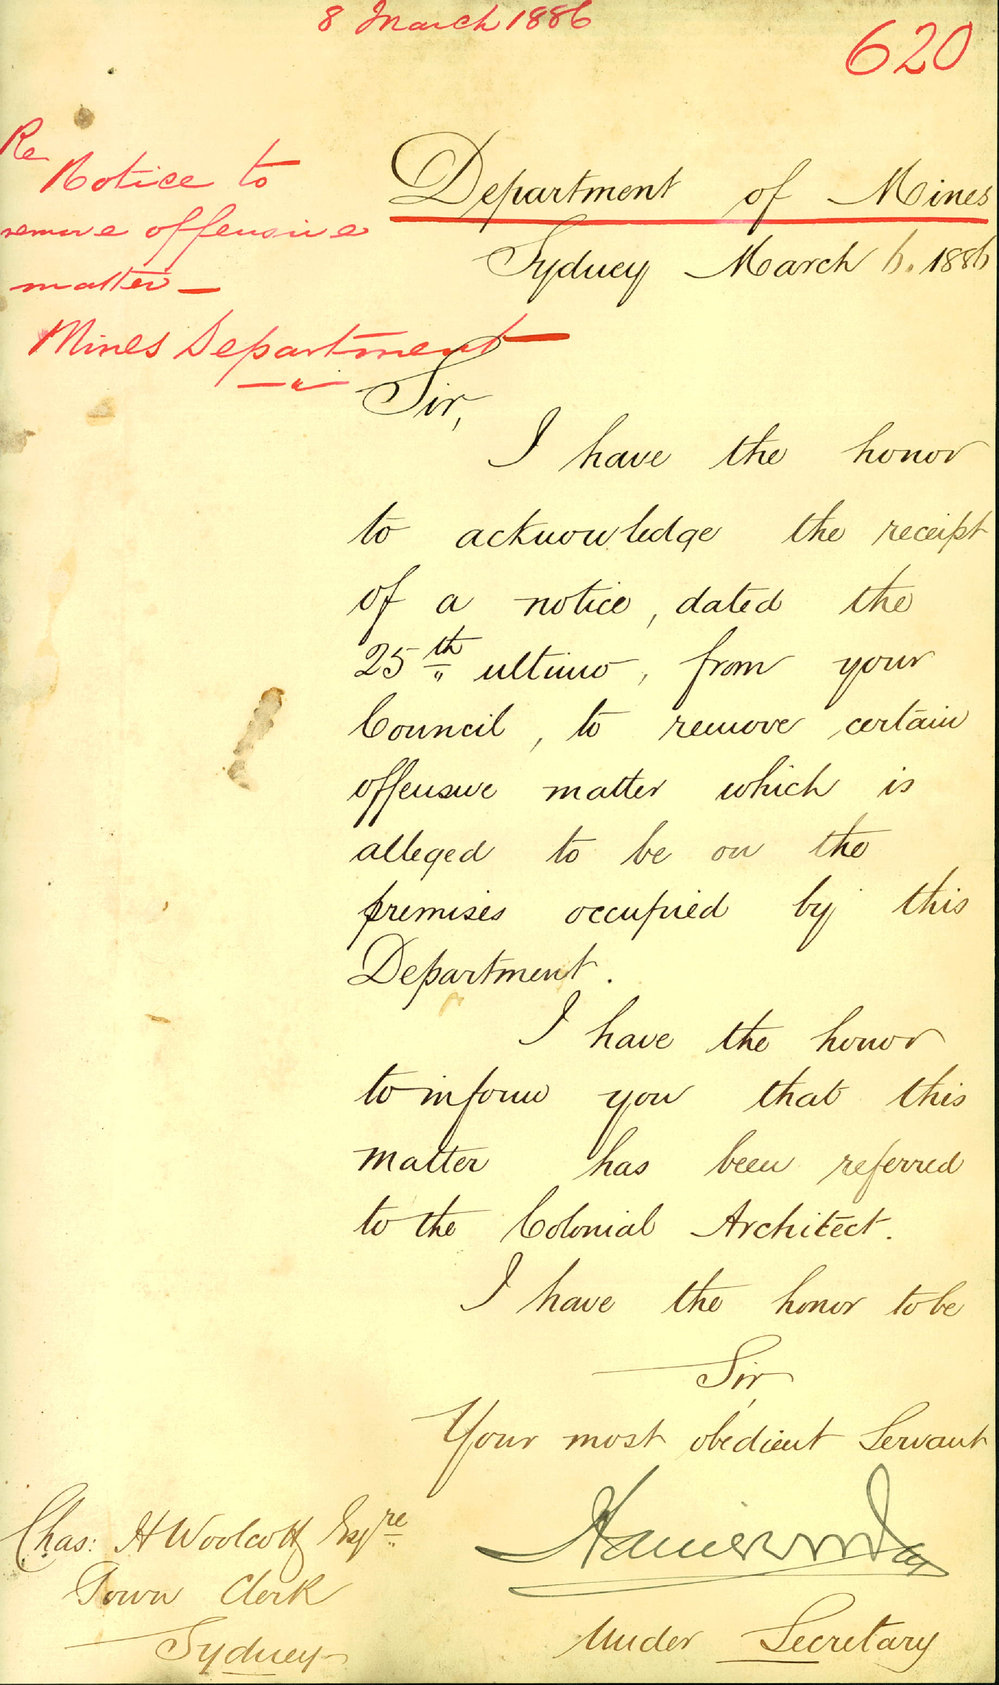 8 March 1886
620
Re
Notice to
remove offensive
matter —
Mines Department
Department of Mines
Sydney March 6. 1886
Sir,
I have the honor
to acknowledge the receipt
of a notice, dated the
25th ultimo, from your
Council, to remove certain
offensive matter which is
alleged to be on the
premises occupied by this
Department.
I have the honor
to inform you that this
matter has been referred
to the Colonial Architect.
I have the honor to be
Sir,
Your most obedient Servant
Under Secretary
Chas: H Woolcott Esqre
Town Clerk
Sydney